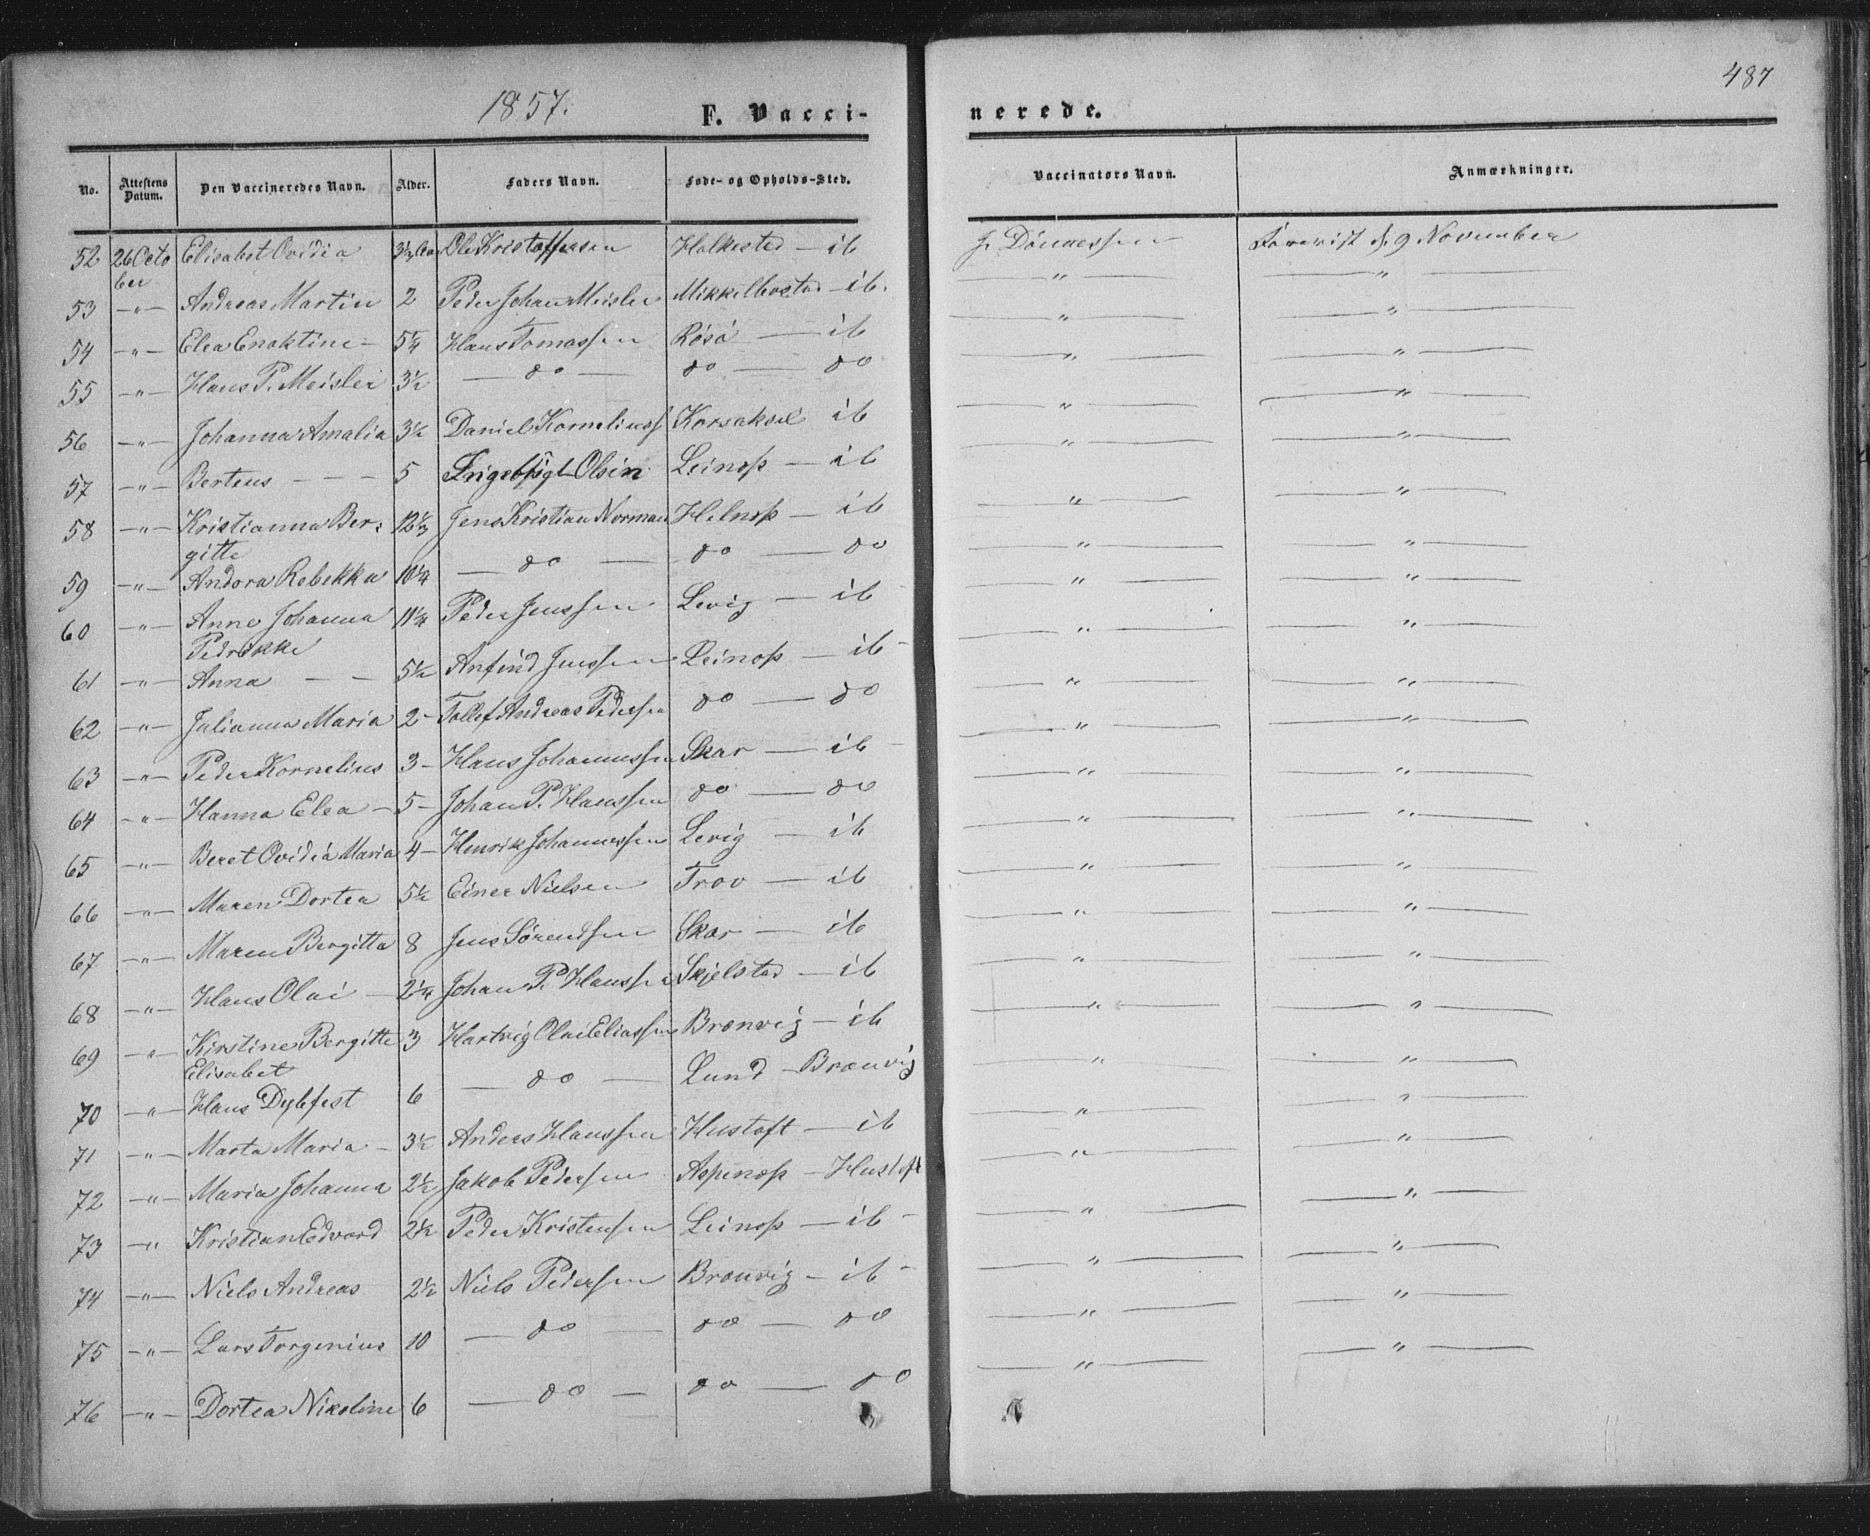 1857. F. Vacci- nerede. 487
No. Attestens Datum. Den Vaccineredes Navn. Alder. Faders Navn. Føde- og Opholds-Sted. Vaccinators Navn. Anmærkninger.
52 26 Octo Elisabet Ovidia 3½ Ole Kristoffersen Halkestad — ib J. Dønnessen Forevist d. 9 November
ber
53 -"- Andreas Martin 2 Peder Johan Meisler Mikkelbostad - ib. — " — — " —
54 -"- Elea Enoktine - 5¼ Hans Tomassen Røsø — ib — " — — " —
55 -"- Hans P. Meisler 3½ — do — do — do — " — — " —
56 -"- Johanna Amalia 3½ Daniel Korneliuss Korsaksel ib — " — — " —
57 -"- Berteus - - - 5 Ingebrigt Olsen Leinæss — ib — " — — " —
58 -"- Kristianna Ber: 12⅓ Jens Kristian Norman Helnæss — ib — " — — " —
gitte
59 -"- Andora Rebekka 10¼ — do — do — do — " — — " —
60 -"- Anne Johanna 11¼ Peder Jenssen Levig — ib — " — — " —
Pedrikke
61 -"- Anna - - 5½ Anfind Jenssen Leinæss — ib - — " — — " —
62 -"- Julianna Maria 2 - Tollef Andreas Pedersen do — do — " — — " —
63 -"- Peder Kornelius 3 - Hans Johannessen Skar — ib - — " — — " —
64 -"- Hanna Elea - 5 - Johan P. Hanssen do — do — " — — " —
65 -"- Beret Ovidia Maria 4 - Henrik Johannessen Levig — ib — " — — " —
66 -"- Maren Dortea 5½ Einer Nielsen Trov — ib — " — — " —
67 -"- Maren Bergitta 8 Jens Sørendsen Skar — ib — " — — " —
68 -"- Hans Olai - 2¼ Johan P. Hanssen Skjelstad — ib — " — — " —
69 -"- Kirstine Bergitte 3 Hartvig Olai Eliassen Brænvig — ib — " — — " —
Elisabet
70 -"- Hans Dybfest 6 — do — Lund - Brænvig — " — — " —
71 -"- Marta Maria - 3½ Anders Hanssen Hustoft — ib — " — — " —
72 -"- Maria Johanna 2½ Jakob Pedersen Aspenæss - Hustoft — " — — " —
73 -"- Kristian Edvard 2½ Peder Kristensen Leinæss — ib - — " — — " —
74 -"- Niels Andreas 2½ Niels Pedersen Brænvig — ib - — " — — " —
75 -"- Lars Torgenius 10 — do — do — do — " — — " —
76 -"- Dortea Nikoline 6 — do — do — do — " — — " —